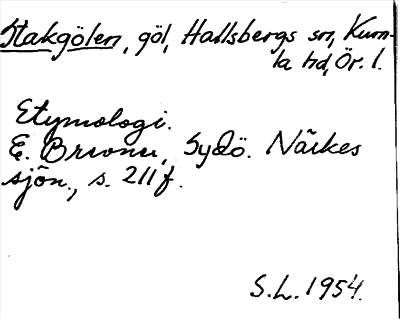 Stakgölen, göl, Hallsbergs sn, Kum-
la hd, Ör. l.
Etymologi.
E. Brevner, Sydö. Närkes
sjön., s. 211 f.
S.L. 1954.